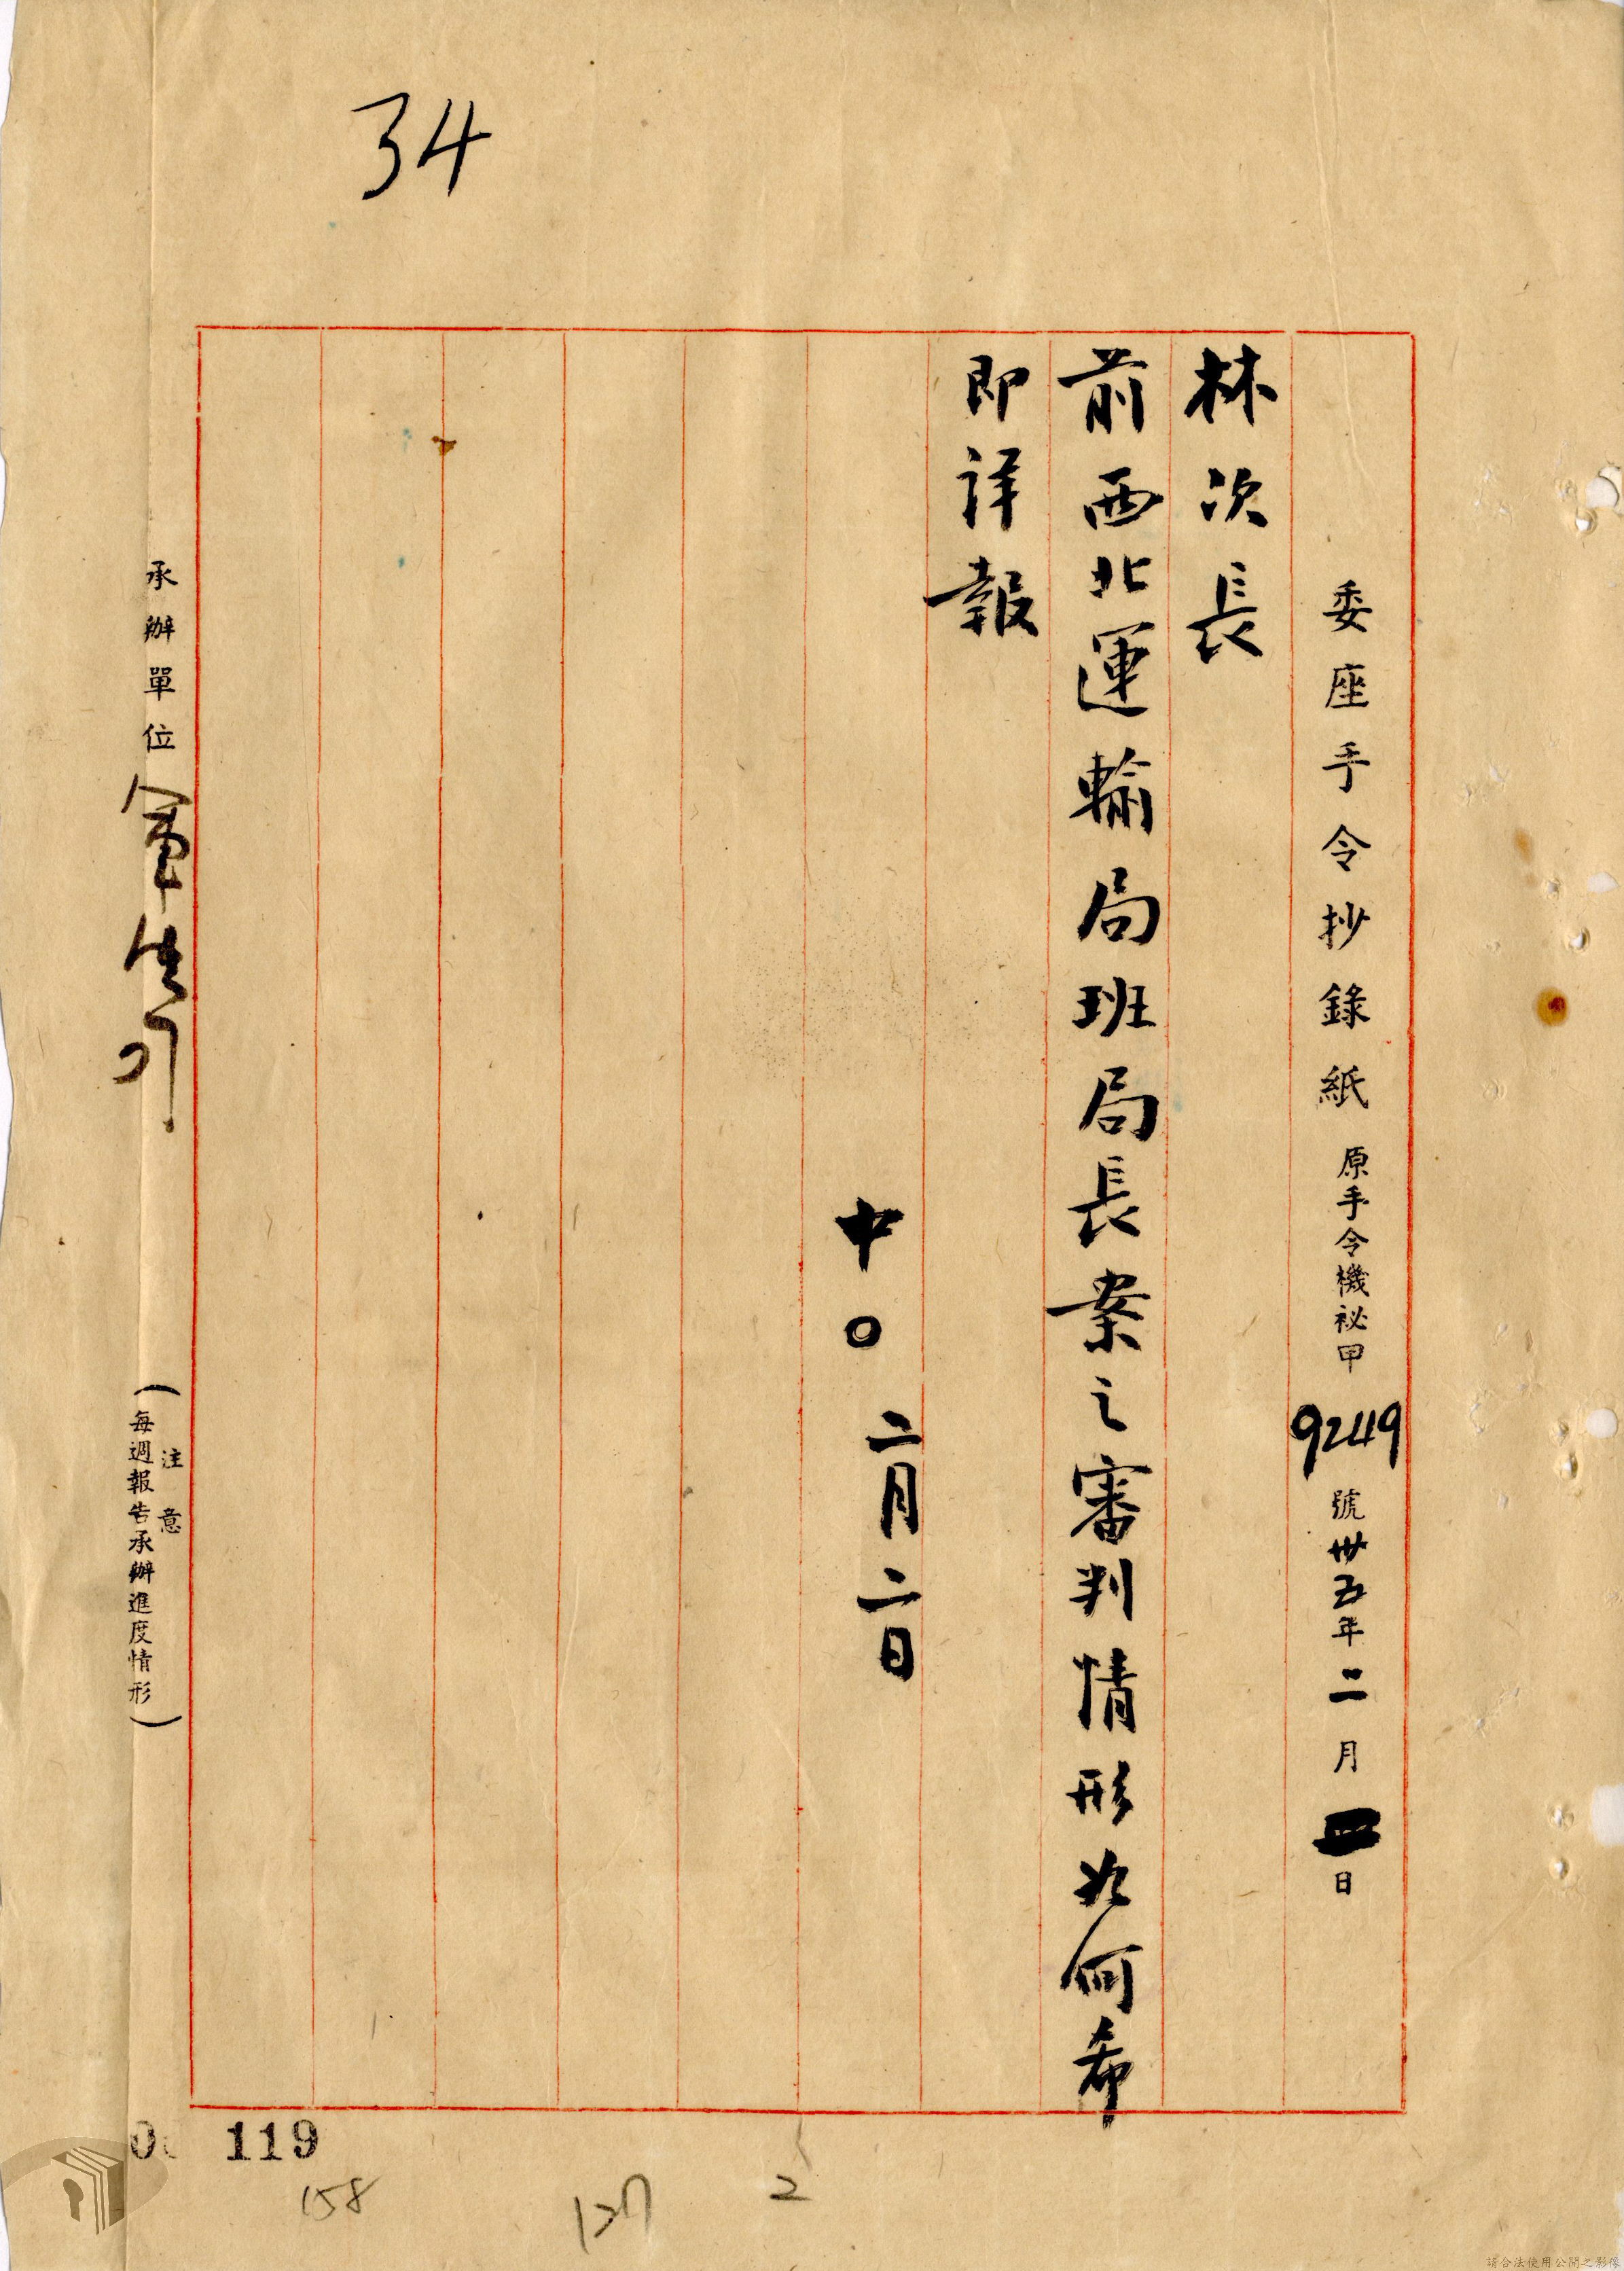 34
委座手令抄錄紙 原手令機祕甲9249號卅五年二月日
林次長
前西北運輸局班局長案之審判情形如何希
即詳報
中○ 二月二日
承辦單位
注意
(每週報告承辦進度情形)
119
158
137
2
請合法使用公開之影像